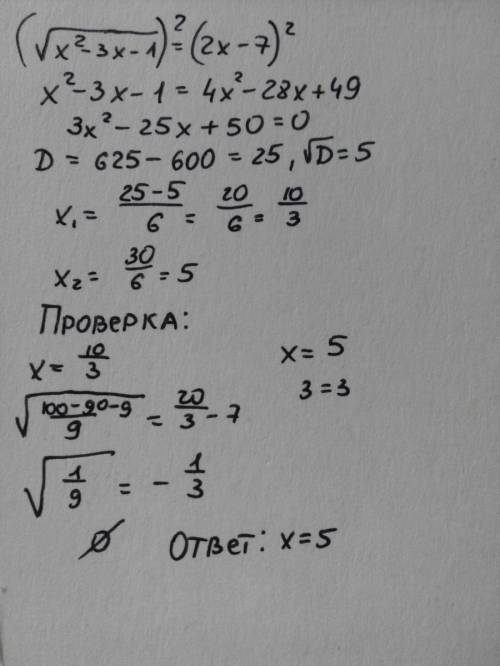 (√(x²-3x-1))² = (2x-7)²
x²-3x-1 = 4x²-28x+49
3x²-25x+50=0
D = 625-600 = 25, √D=5
x₁ = (25-5)/6 = 20/6 = 10/3
x₂ = 30/6 = 5
Проверка:
x = 10/3
x = 5
√((100-90-9)/9) = 20/3 - 7
3 = 3
√(1/9) = - 1/3
∅ Ответ: x=5